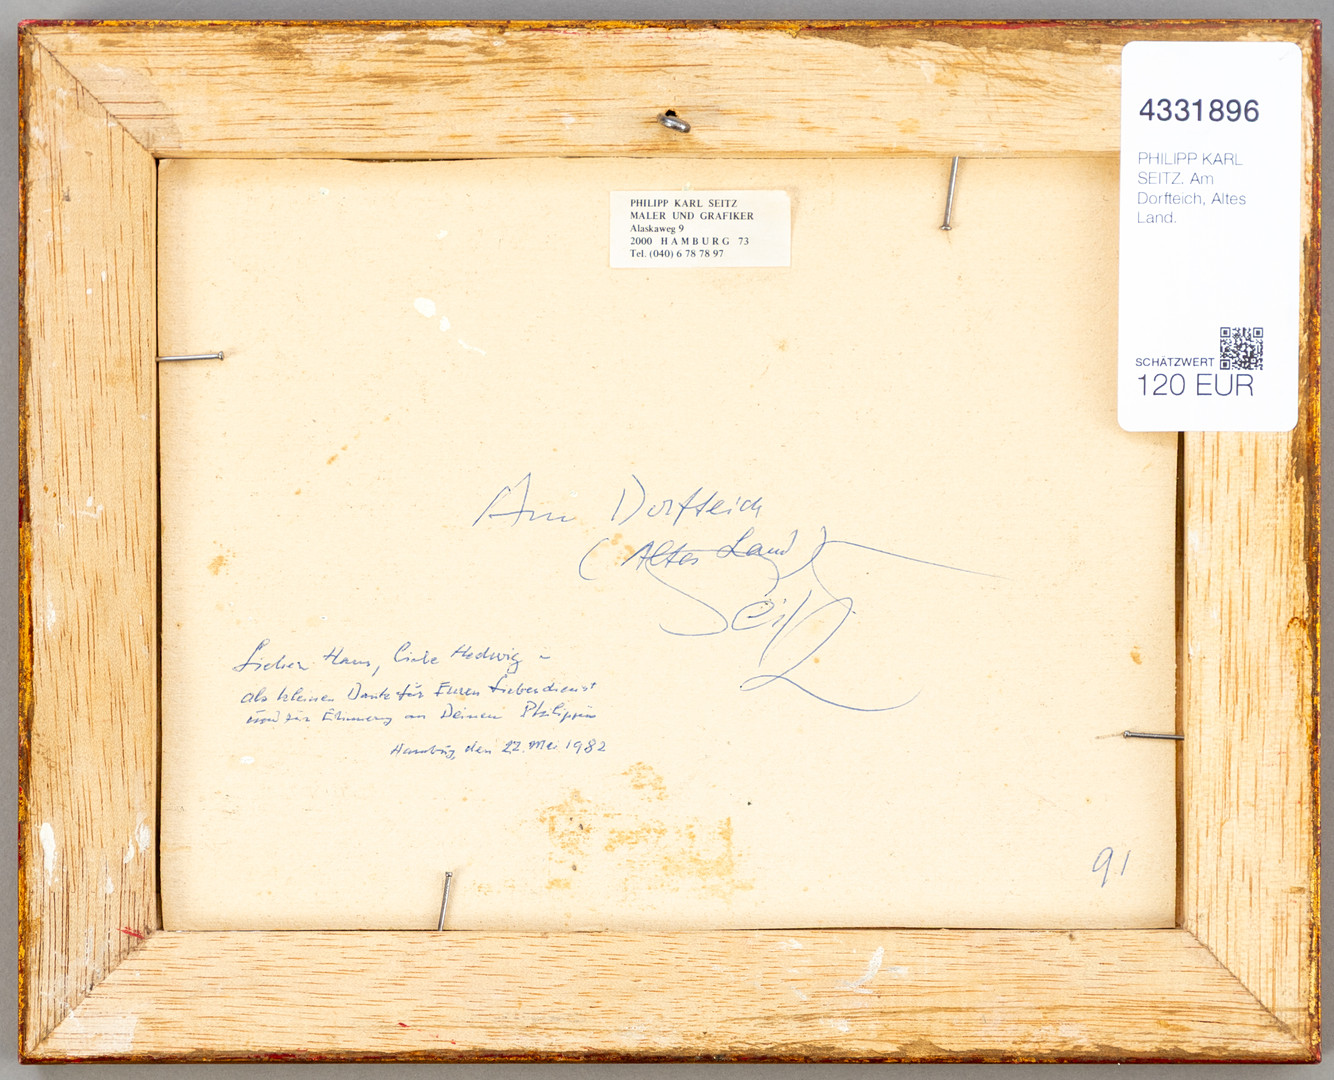 4331896
PHILIPP KARL
SEITZ. Am
Dorfteich, Altes
Land.
SCHÄTZWERT
120 EUR
PHILIPP KARL SEITZ
MALER UND GRAFIKER
Alaskaweg 9
2000 HAMBURG 73
Tel. (040) 6 78 78 97
Am Dorfteich
(Altes Land)
Seitz
Lieber Hans, liebe Hedwig –
als kleinen Dank für Euren Liebesdienst
und zur Erinnerung an Deinen
Hamburg, den 22. Mai 1982
91